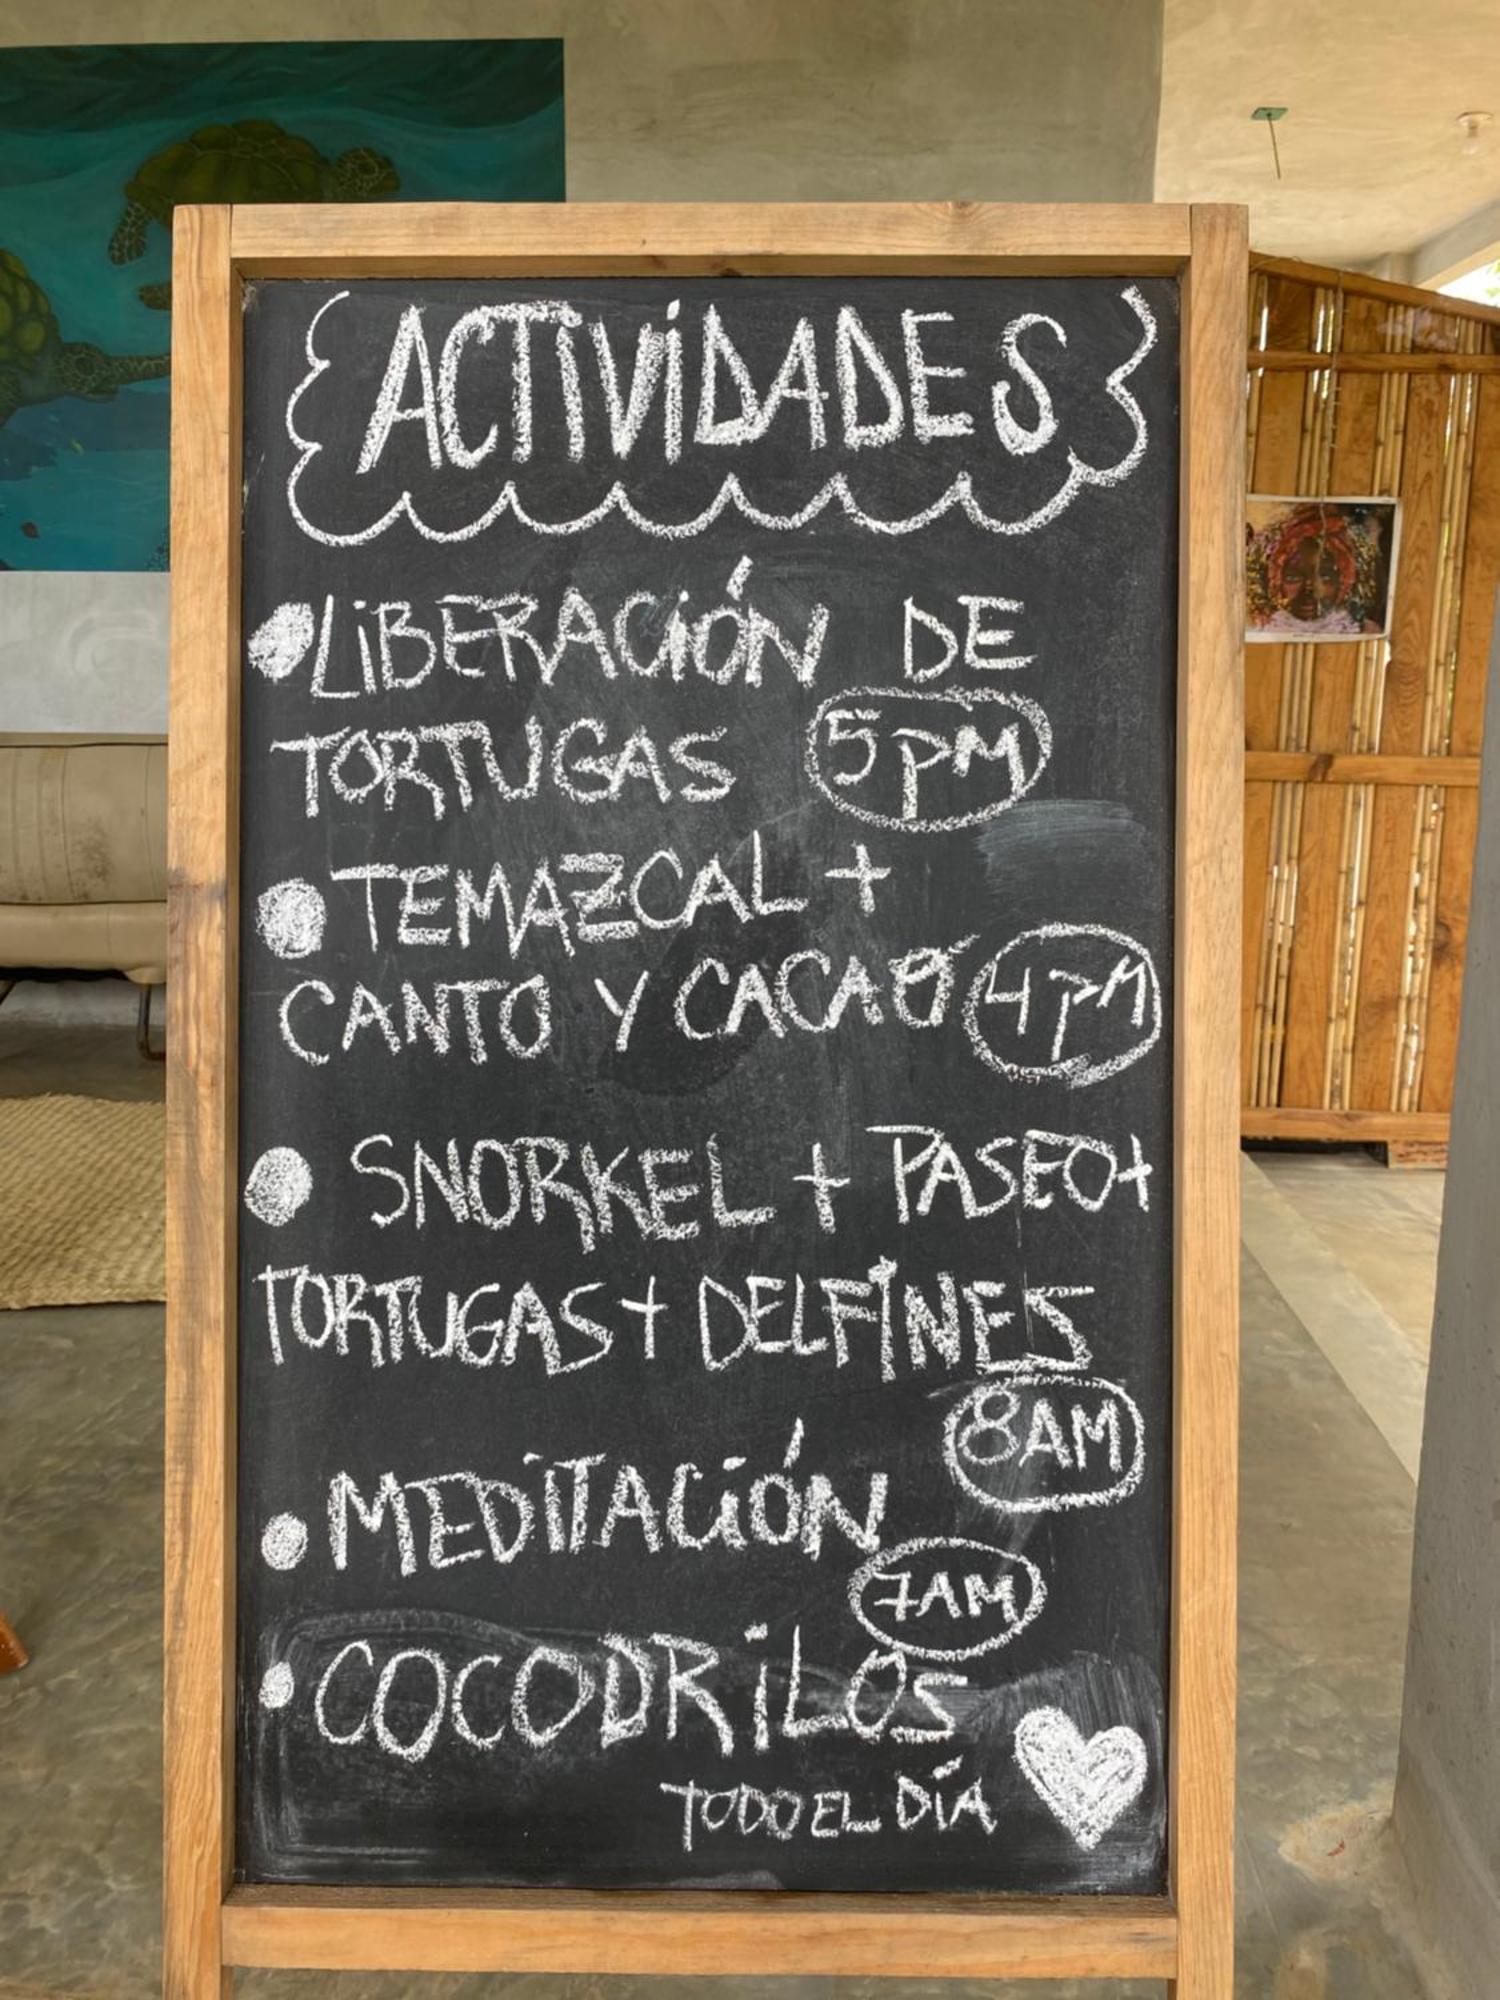 ACTIVIDADES
•LIBERACIÓN DE
TORTUGAS 5PM
•TEMAZCAL +
CANTO Y CACAO 4PM
• SNORKEL + PASEO+
TORTUGAS+DELFINES
8AM
•MEDITACIÓN
7AM
•COCODRILOS
TODO EL DÍA